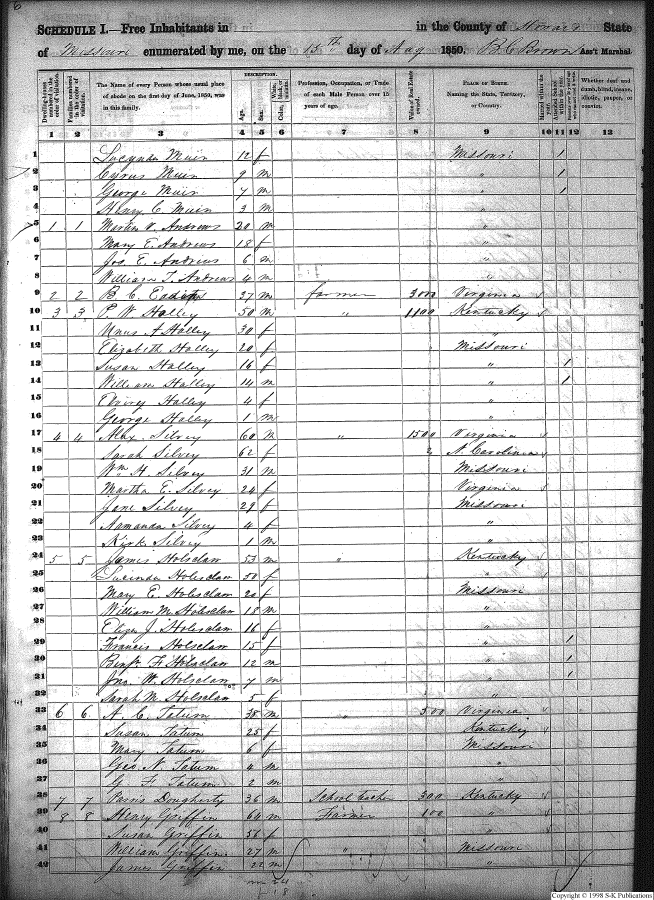 SCHEDULE I.—Free Inhabitants in in the County of Howard State
of Missouri enumerated by me, on the 15th day of Aug 1850. B. C. Brown Ass't Marshal.
Dwelling-houses numbered in the order of visitation.
Families numbered in the order of visitation.
The Name of every Person whose usual place of abode on the first day of June, 1850, was in this family.
DESCRIPTION.
Age.
Sex.
Color, White, black, or mulatto.
Profession, Occupation, or Trade of each Male Person over 15 years of age.
Value of Real Estate owned.
PLACE OF BIRTH. Naming the State, Territory, or Country.
Married within the year.
Whether deaf and dumb, blind, insane, idiotic, pauper, or convict.
1 2 3 4 5 6 7 8 9 10 11 12 13
1 Muir 12 f Missouri 1
2 Cyrus Muir 9 m " 1
3 George Muir 7 m " 1
4 Henry C. Muir 3 m "
5 1 1 Martin V. Andrews 20 m "
6 Mary E. Andrews 18 f "
7 Jos. E. Andrews 6 m "
8 William T. Andrews 4 m "
9 2 2 B. C. 37 m farmer 3000 Virginia
10 3 3 P. W. Halley 50 m " 1100 Kentucky
11 Halley 30 f "
12 Elizabeth Halley 20 f Missouri
13 Susan Halley 16 f " 1
14 William Halley 14 m " 1
15 Halley 4 f "
16 George Halley 1 m "
17 4 4 Alex. Silvey 60 m " 1500 Virginia
18 Sarah Silvey 62 f N. Carolina
19 Wm H. Silvey 31 m Missouri
20 Martha E. Silvey 24 f Virginia
21 Jane Silvey 29 f Missouri
22 Silvey 4 f "
23 Kirk Silvey 1 m "
24 5 5 James Holsclaw 53 m " Kentucky
25 Lucinda Holsclaw 50 f "
26 Mary E. Holsclaw 20 f Missouri
27 William M. Holsclaw 18 m "
28 Eliza J. Holsclaw 16 f "
29 Francis Holsclaw 15 f " 1
30 Benj. F. Holsclaw 12 m " 1
31 Jno. W. Holsclaw 7 m " 1
32 Sarah M. Holsclaw 5 f "
33 6 6 A. C. Tatum 35 m " 500 Virginia
34 Susan Tatum 25 f Kentucky
35 Mary Tatum 6 f Missouri
36 Geo. N. Tatum 4 m "
37 G. F. Tatum 2 m "
38 7 7 Dougherty 36 m School Teacher 300 Kentucky
39 8 8 Henry Griffin 64 m Farmer 100 "
40 Susan Griffin 56 f "
41 William Griffin 27 m " Missouri
42 James Griffin 22 m "
Copyright © 1998 S-K Publications